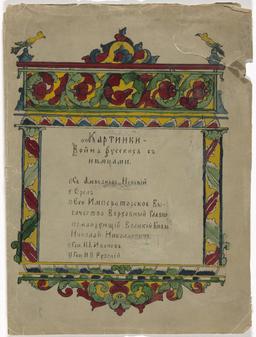 Картинки -
Война русскихъ съ
немцами.
Св. Александръ Невскій
Орелъ
Его Императорское Вы-
сочество Верховный Главно-
командующій Великій Князь
Николай Николаевичъ.
Ген. Н.І. Ивановъ
Ген. Н.В. Рузскій